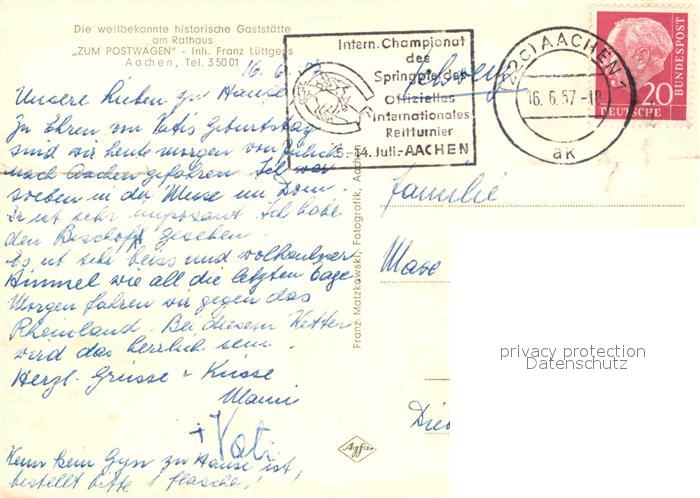 Die weltbekannte historische Gaststätte
am Rathaus
„ZUM POSTWAGEN" - Inh. Franz Lüttgens
Aachen, Tel. 35001
16. 6.
Unsere Lieben zu Hause!
Zu Ehren von Vatis Geburtstag
sind wir heute morgen von Jülich
nach Aachen gefahren. Ich war
soeben in der Messe im Dom.
Er ist sehr imposant. Ich habe
den Bischof gesehen.
Es ist sehr heiss und wolkenloser
Himmel wie all die letzten Tage
Morgen fahren wir gegen das
Rheinland. Bei diesem Wetter
wird das herrlich sein.
Herzl. Grüsse + Küsse
Mami
+ Vati
Wenn kein Gyn zu Hause ist,
bestellt bitte 1 Flasche!
Intern. Championat
des
Springpferdes
Offizielles
Internationales
Reitturnier
5.-14. Juli.-AACHEN
Schweiz
(22c) AACHEN 1
16. 6. 57.-18
ak
20
DEUTSCHE
BUNDESPOST
Familie
Mase
Died
Franz Matzkowski, Fotografik, Aachen
Agfa
privacy protection
Datenschutz